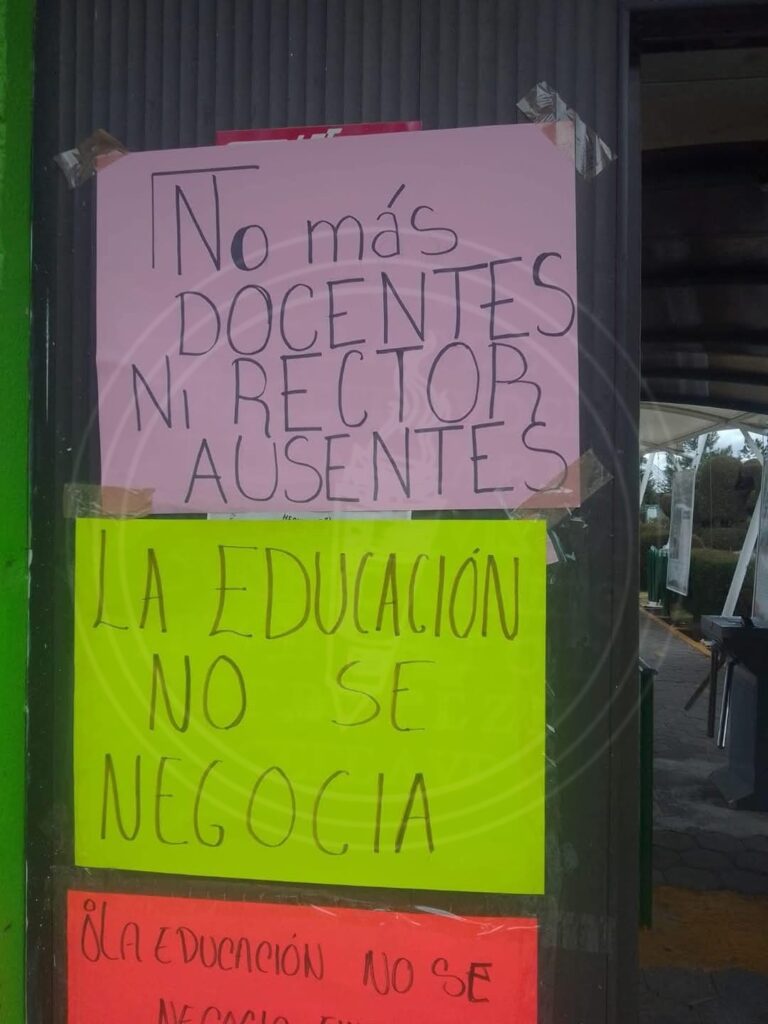 No más
DOCENTES
Ni RECTOR
AUSENTES
LA EDUCACIÓN
NO SE
NEGOCIA
¡LA EDUCACIÓN NO SE